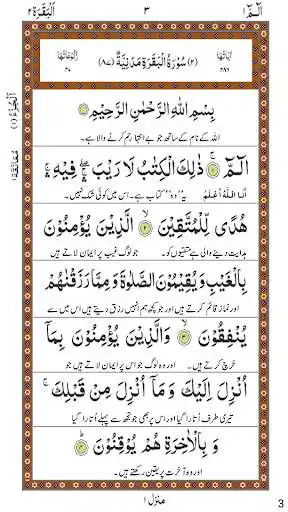 الٓمّٓ ۱
۳
اَلْبَقَرَة ۲
اٰیَاتُهَا
(۲) سُوْرَةُ الْبَقَرَةِ مَدَنِیَّةٌ (۸۷)
رُكُوْعَاتُهَا
۲۸۶
۴۰
بِسْمِ اللّٰهِ الرَّحْمٰنِ الرَّحِیْمِ ۱
اللہ کے نام کے ساتھ جو بے انتہا رحم کرنے والا ہے۔
الٓمّٓ ۲ ذٰلِكَ الْكِتٰبُ لَا رَیْبَ ۛ فِیْهِ ۛ
انا اللہ اعلم یہ "وہ" کتاب ہے۔ اس میں کوئی شک نہیں۔
هُدًی لِّلْمُتَّقِیْنَ ۳ الَّذِیْنَ یُؤْمِنُوْنَ
ہدایت دینے والی ہے متقیوں کو۔ جو لوگ غیب پر ایمان لاتے ہیں
بِالْغَیْبِ وَ یُقِیْمُوْنَ الصَّلٰوةَ وَ مِمَّا رَزَقْنٰهُمْ
اور نماز قائم کرتے ہیں اور جو کچھ ہم انہیں رزق دیتے ہیں اس میں سے
یُنْفِقُوْنَ ۴ وَ الَّذِیْنَ یُؤْمِنُوْنَ بِمَاۤ
خرچ کرتے ہیں۔ اور وہ لوگ جو اس پر ایمان لاتے ہیں جو
اُنْزِلَ اِلَیْكَ وَ مَاۤ اُنْزِلَ مِنْ قَبْلِكَ ۚ
تیری طرف اُتارا گیا اور اس پر بھی جو تجھ سے پہلے اُتارا گیا
وَ بِالْاٰخِرَةِ هُمْ یُوْقِنُوْنَ ۵
اور وہ آخرت پر یقین رکھتے ہیں۔
منزل ۱
3
اَلْجُزْءُ (۱)
معانقة ۱